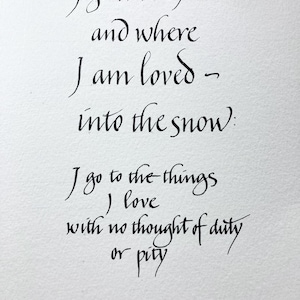 and where
I am loved –
into the snow:
I go to the things
I love
with no thought of duty
or pity